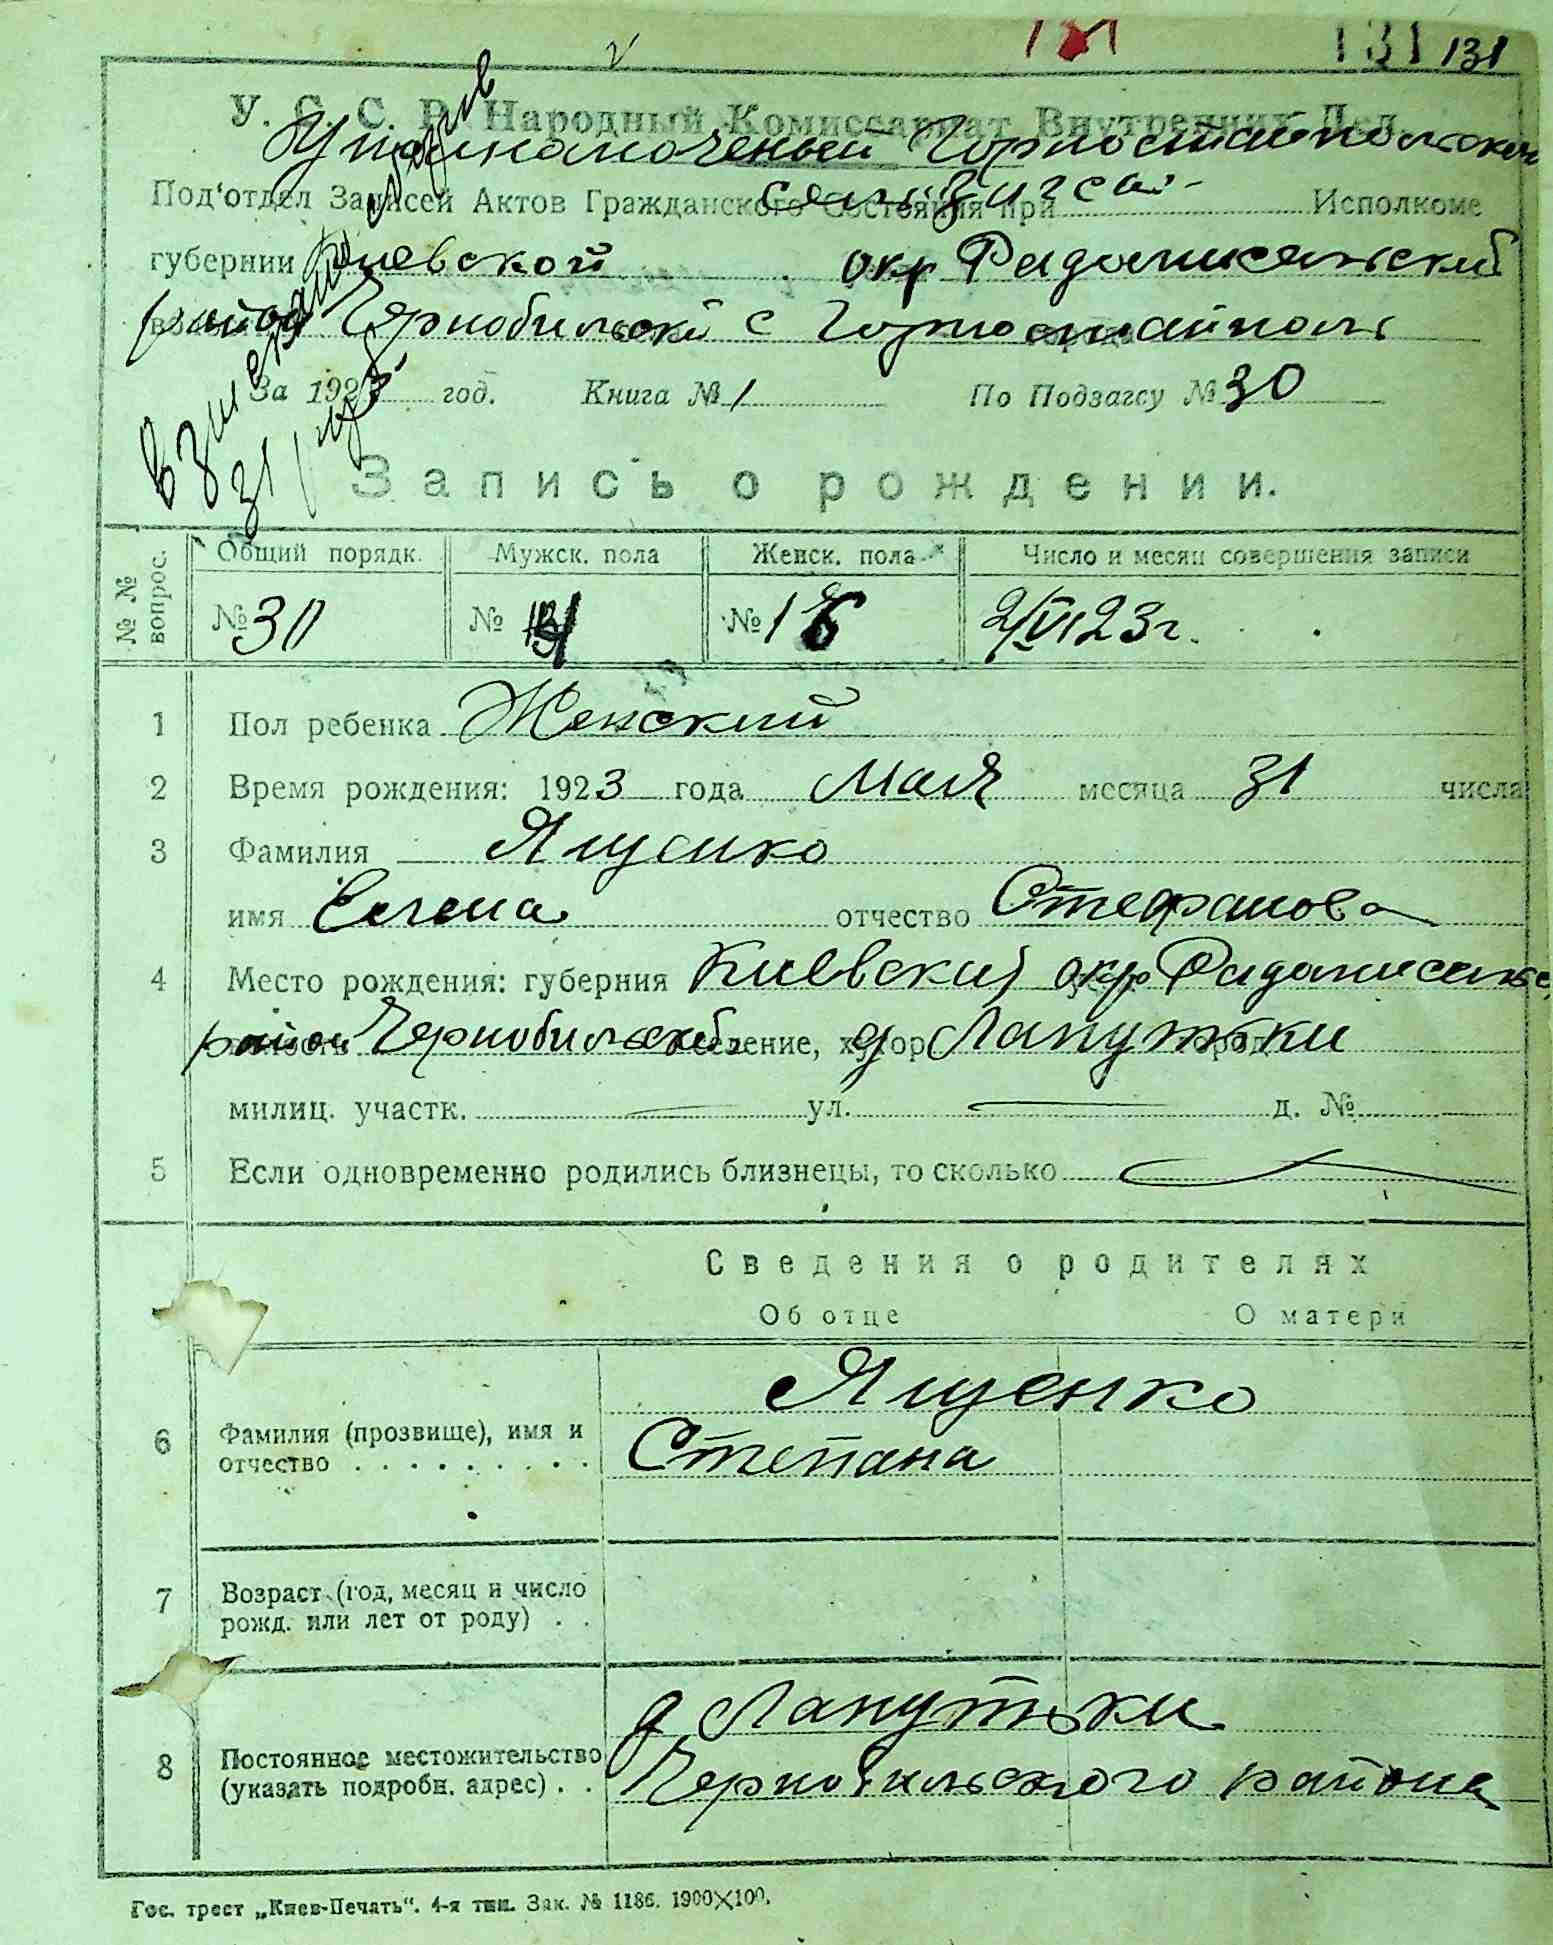 131 131 131
У. С. С. Р. Народный Комиссариат Внутренних Дел.
Под'отдел Записей Актов Гражданского Состояния при Исполкоме
губернии Киевской окр Радомисельский
район Чернобильский с Горностайполь
За 1923 год. Книга № 1 По Подзагсу № 30
Запись о рождении.
№№ вопрос. Общий порядк. Мужск. пола Женск. пола Число и месяц совершения записи
№ 30 № № 16 2/VI 23 г.
1 Пол ребенка Женский
2 Время рождения: 1923 года Мая месяца 31 числа
3 Фамилия Ященко
имя Елена отчество Стефанова
4 Место рождения: губерния Киевский окр Радомисельс
район Чернобильский селение, хутор д Лапутьки
милиц. участк. ул. д. №
5 Если одновременно родились близнецы, то сколько
Сведения о родителях
Об отце О матери
Ященко
6 Фамилия (прозвище), имя и отчество Степана
7 Возраст (год, месяц и число рожд. или лет от роду)
д Лапутьки
8 Постоянное местожительство (указать подробн. адрес) Чернобильского района
Гос. трест „Киев-Печать“. 4-я тип. Зак. № 1186. 1900×100.